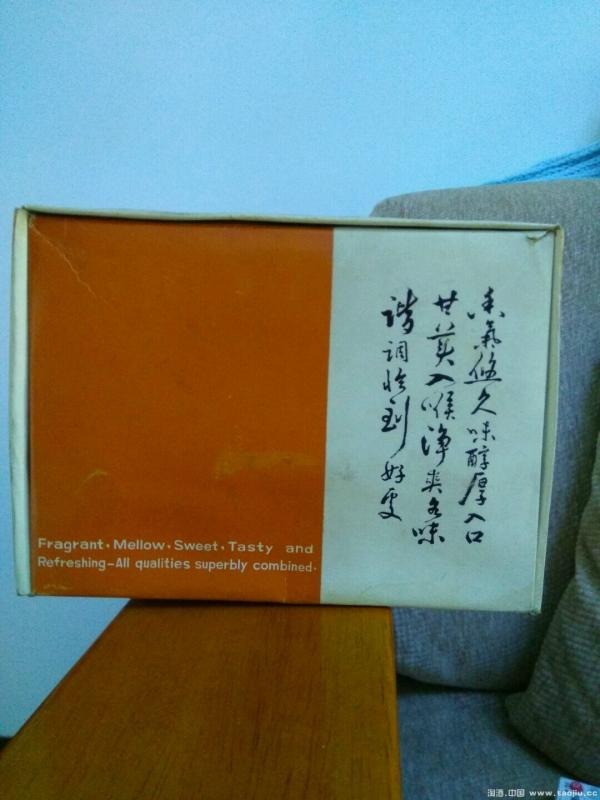 香氣悠久味醇厚入口
甘美入喉淨爽各味
諧調恰到好处
Fragrant·Mellow·Sweet·Tasty and
Refreshing-All qualities superbly combined.
淘酒.中国 www.taojiu.cc